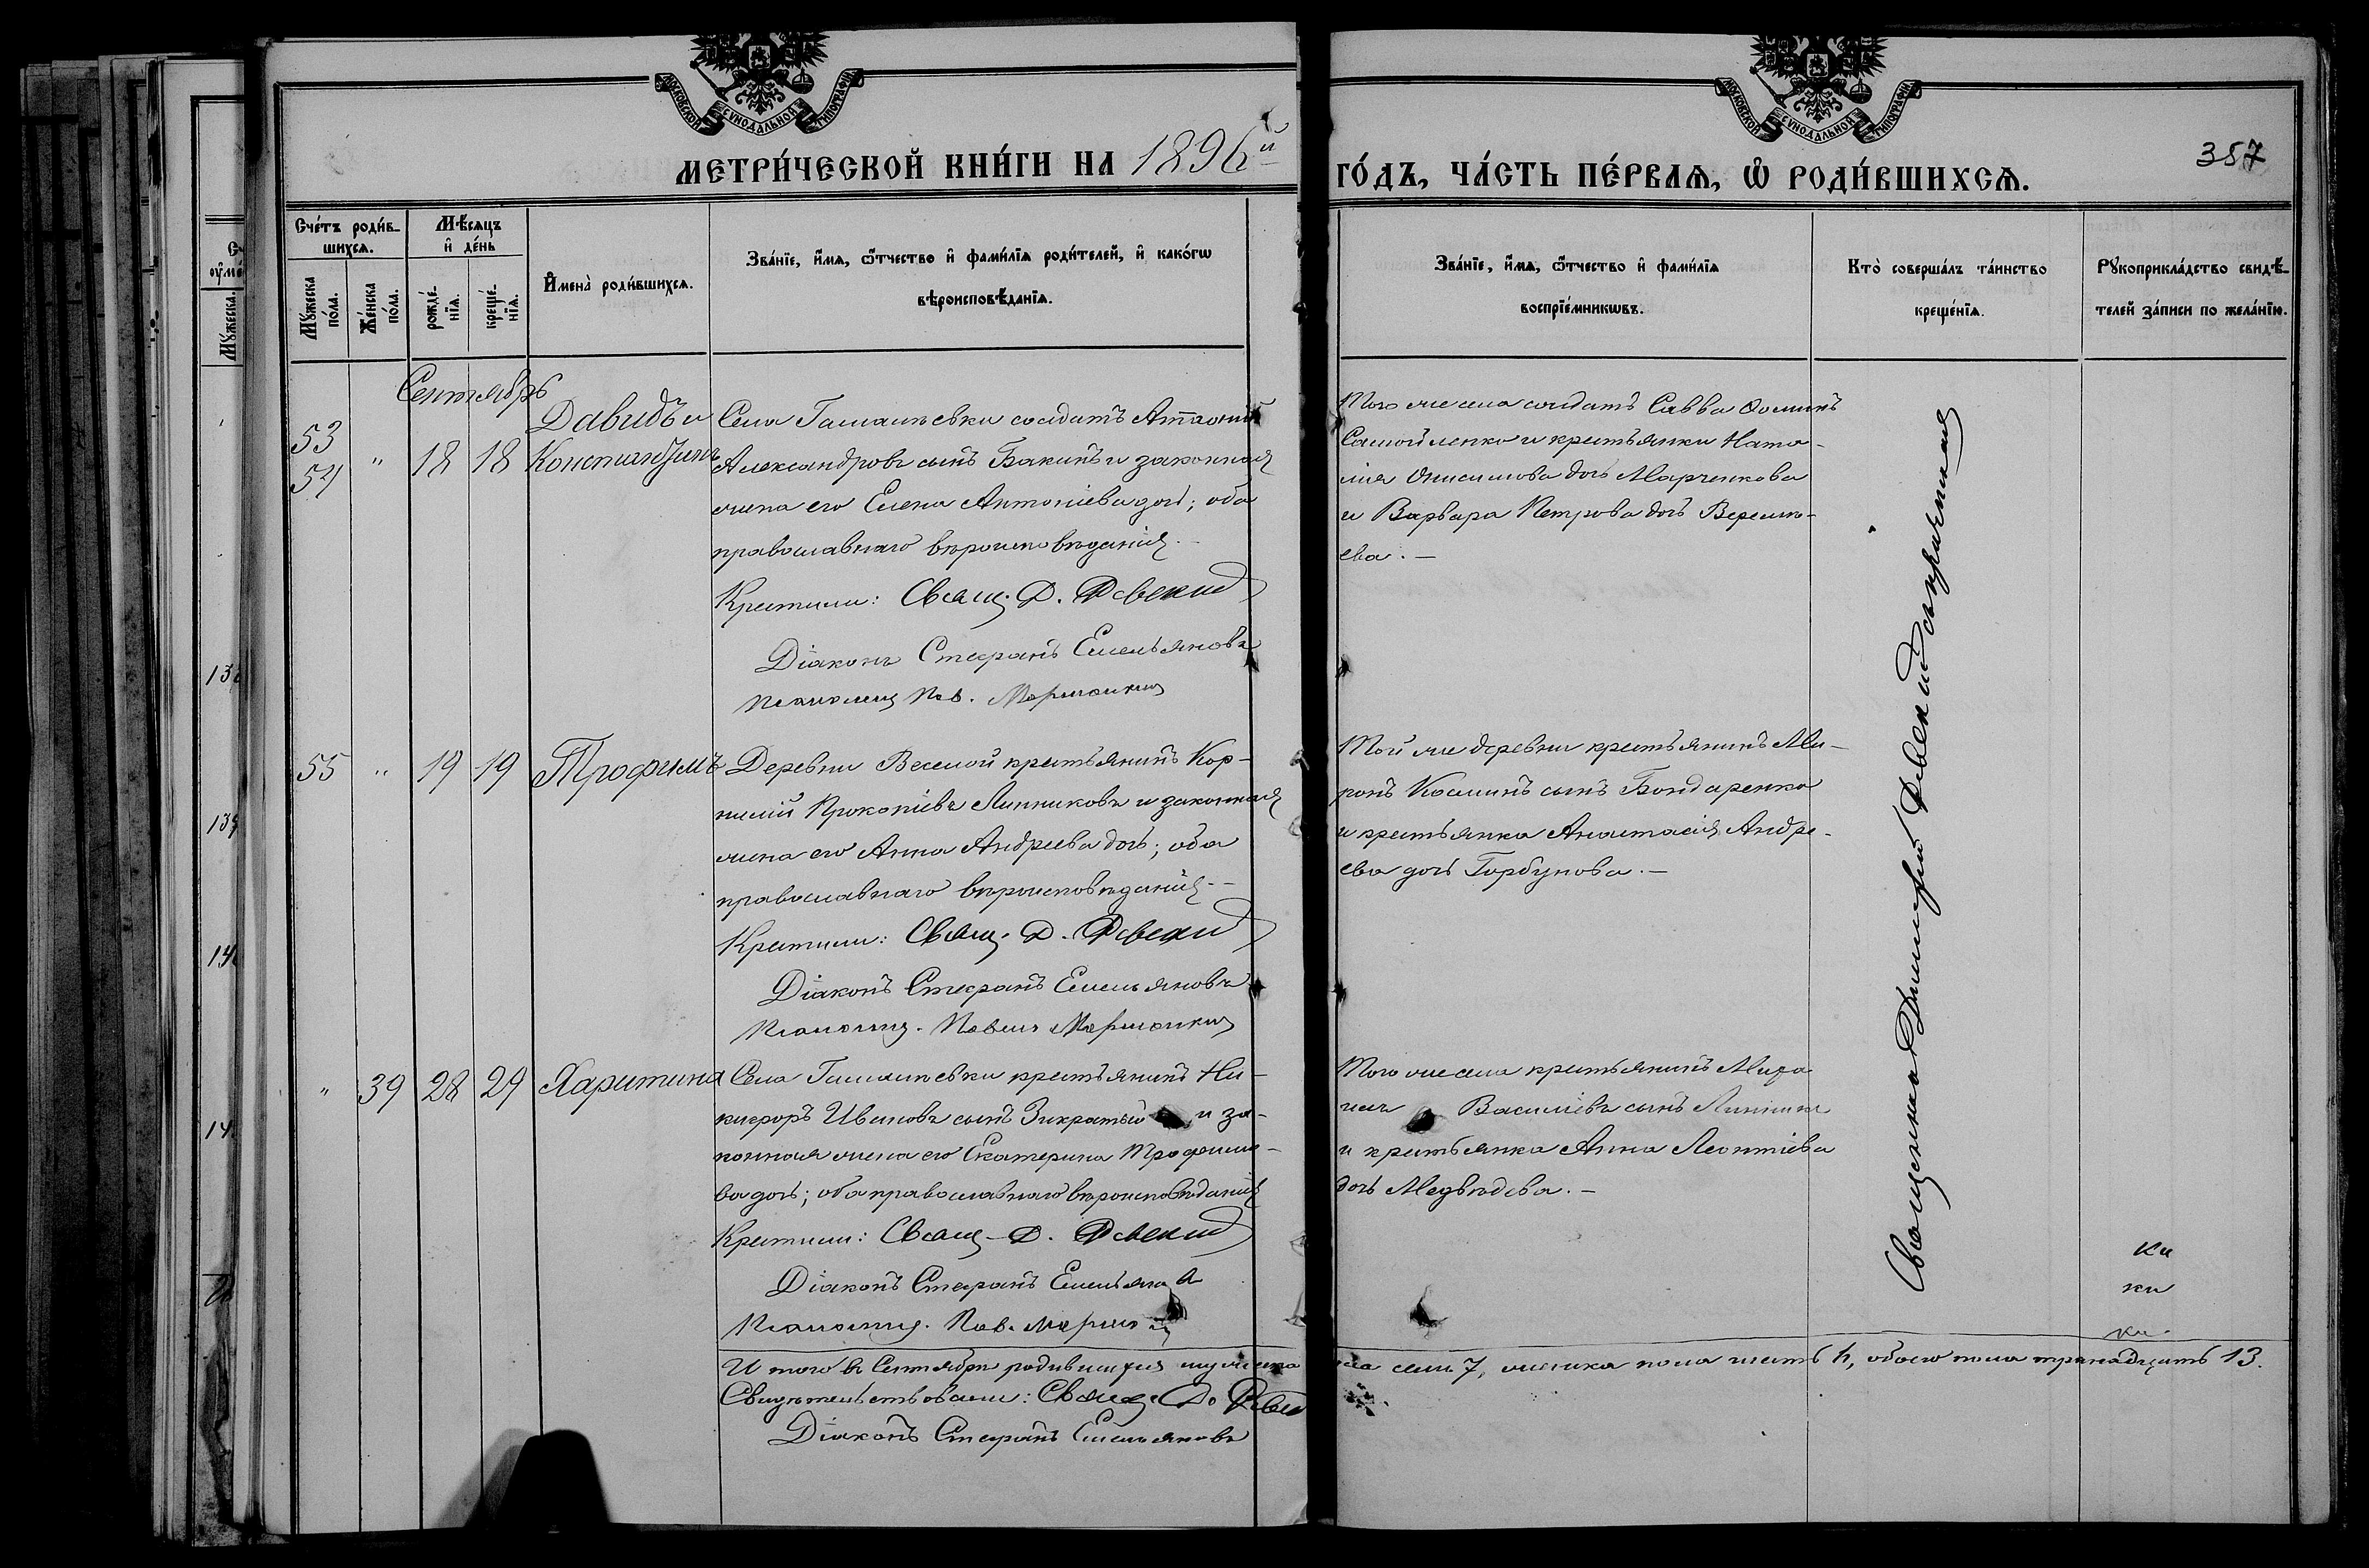 МОСКОВСКОЙ СѴНОДАЛЬНОЙ ТИПОГРАФІИ
МОСКОВСКОЙ СѴНОДАЛЬНОЙ ТИПОГРАФІИ
МЕТРИ́ЧЕСКОЙ КНИ́ГИ НА 1896й
ГО́ДЪ, ЧА́СТЬ ПЕ́РВАѦ, Ѡ҆ РОДИ́ВШИХСѦ.
357
Сче́тъ роди́в-
шихсѧ.
Мꙋ́жеска по́ла.
Же́нска по́ла.
Мѣ́сѧцъ
и҆ де́нь
рожде́-
нїѧ.
креще́-
нїѧ.
И҆мена̀ роди́вшихсѧ.
Зва́нїе, и҆́мѧ, ѻ҆́тчество и҆ фами́лїѧ роди́телей, и҆ како́гѡ
вѣроисповѣ́данїѧ.
Зва́нїе, и҆́мѧ, ѻ҆́тчество и҆ фами́лїѧ
воспрїе́мникѡвъ.
Кто̀ соверша́лъ та́инство
креще́нїѧ.
Рꙋкоприкла́дство свидѣ́-
телей за́писи по жела́нїю.
Сентябрь
53
54 " 18 18 Давидъ и
Константинъ
Села солдатъ
Александровъ сынъ Бакинъ и законная
жена его Елена Антоніева дочь; оба
православнаго вѣроисповѣданія.
Крестили: Свящ. Д. Ревскій
Діаконъ Стефанъ Емельяновъ
Псаломщ. Пав.
Того же села солдатъ Савва Ѳоминъ
Самойленко и крестьянки Ната-
лія Онисимова дочь Марченкова
и Варвара Петрова дочь
ева. —
55 " 19 19 Трофимъ
Деревни Веселой крестьянинъ Кор-
нилій Прокопіевъ Линниковъ и законная
жена его Анна Андреева дочь; оба
православнаго вѣроисповѣданія. —
Крестили: Свящ. Д. Ревскій
Діаконъ Стефанъ Емельяновъ
Псаломщ. Павелъ
Той же деревни крестьянинъ Ми-
ронъ Косминъ сынъ Бондаренко
и крестьянка Анастасія Андре-
ева дочь Горбунова. —
" 39 28 29 Харитина
Села крестьянинъ Ни-
кифоръ Ивановъ сынъ и за-
конная жена его Екатерина Трофимо-
ва дочь; оба православнаго вѣроисповѣданія
Крестили: Свящ. Д. Ревскій
Діаконъ Стефанъ
Псаломщ. Пав.
Того же села крестьянинъ Миха
илъ Василіевъ сынъ Линникъ
и крестьянка Анна Леонтіева
дочь Медвѣдева. —
Священникъ Димитрій Ревскій съ причтомъ
Итого въ Сентябрѣ родившихся мужеска
ла семь 7, женска пола шесть 6, обоего пола тринадцать 13.
Свидѣтельствовали: Свящ. Д.
Діаконъ Стефанъ Емельяновъ